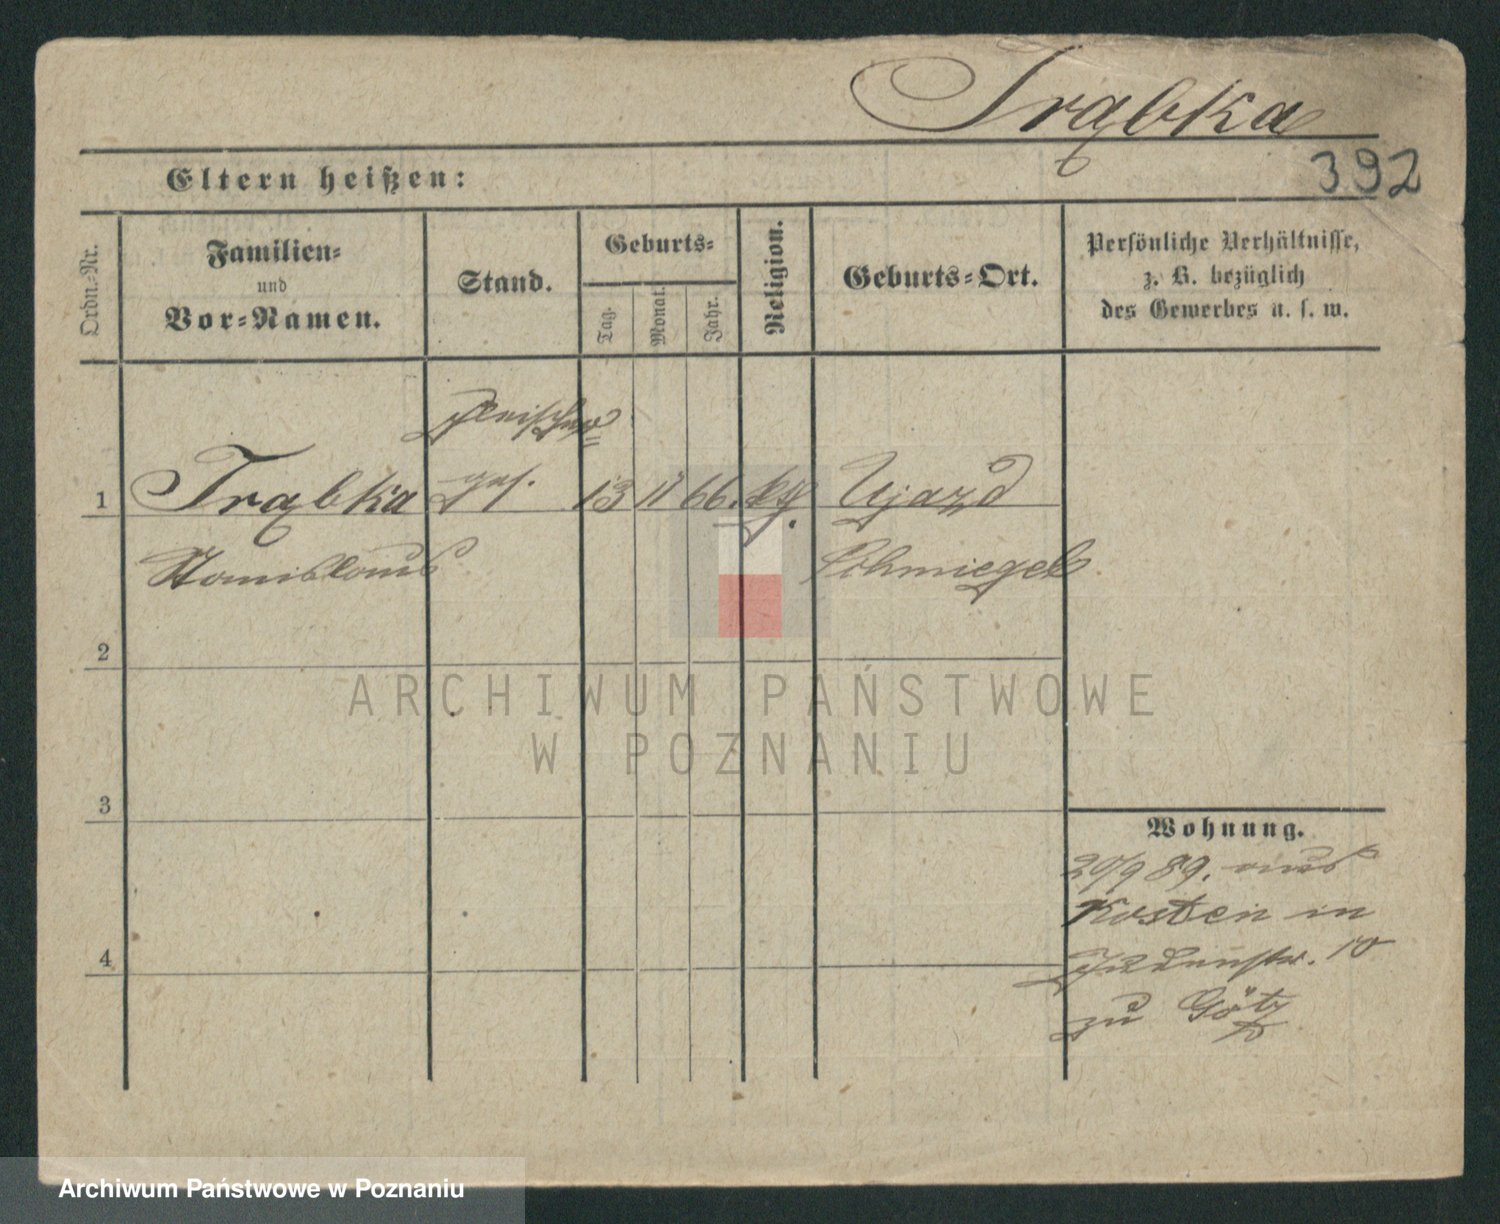 Trąbka
392
Eltern heißen:
Ordn.-Nr.
Familien-
und
Vor-Namen.
Stand.
Geburts-
Tag.
Monat.
Jahr.
Religion.
Geburts-Ort.
Persönliche Verhältnisse,
z. B. bezüglich
des Gewerbes u. s. w.
Fleischer=
1 Trąbka ges. 13 11 66. Ujazd
Stanislaus Schmiegel
2
ARCHIWUM PAŃSTWOWE
W POZNANIU
3
Wohnung.
20/9 89. aus
Kosten in
Judenstr. 10
4
zu Götz
Archiwum Państwowe w Poznaniu